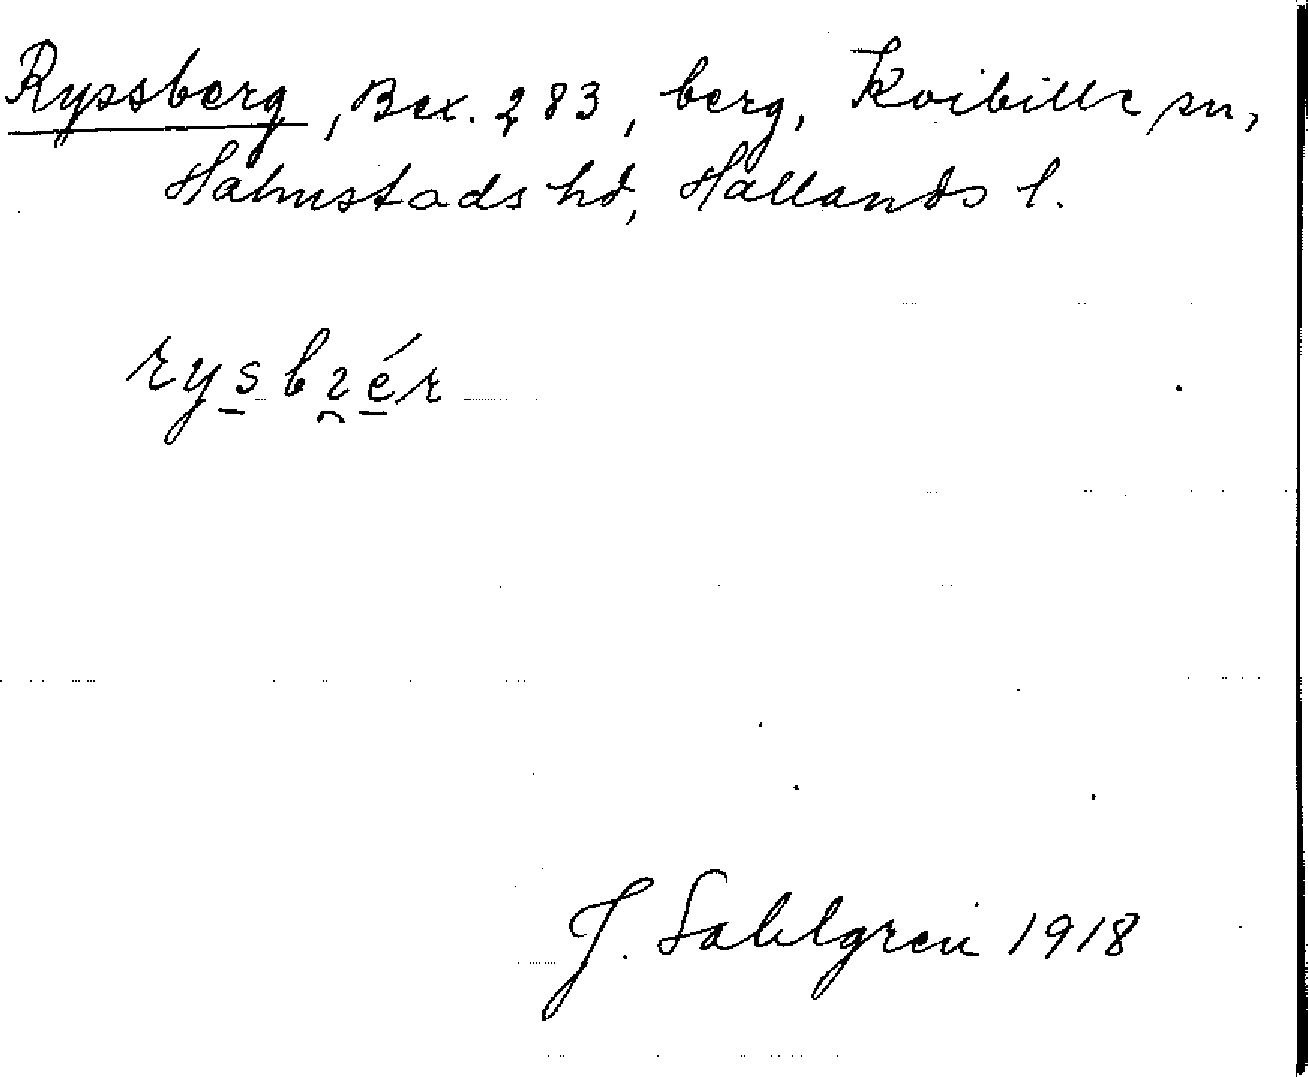 Ryssberg, Bex. 283, berg, Kvibille sn,
Halmstads hd, Hallands l.
rysbɿér
J. Sahlgren 1918